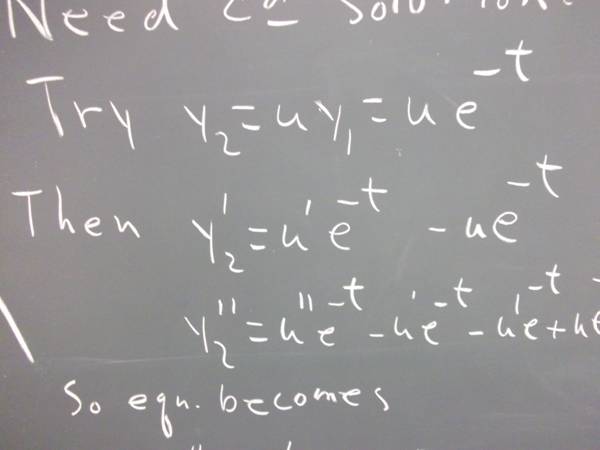 Need 2nd solution.
Try y₂ = u y₁ = u e⁻ᵗ
Then y₂' = u' e⁻ᵗ - u e⁻ᵗ
y₂'' = u'' e⁻ᵗ - u' e⁻ᵗ - u' e⁻ᵗ + u e
So eqn. becomes